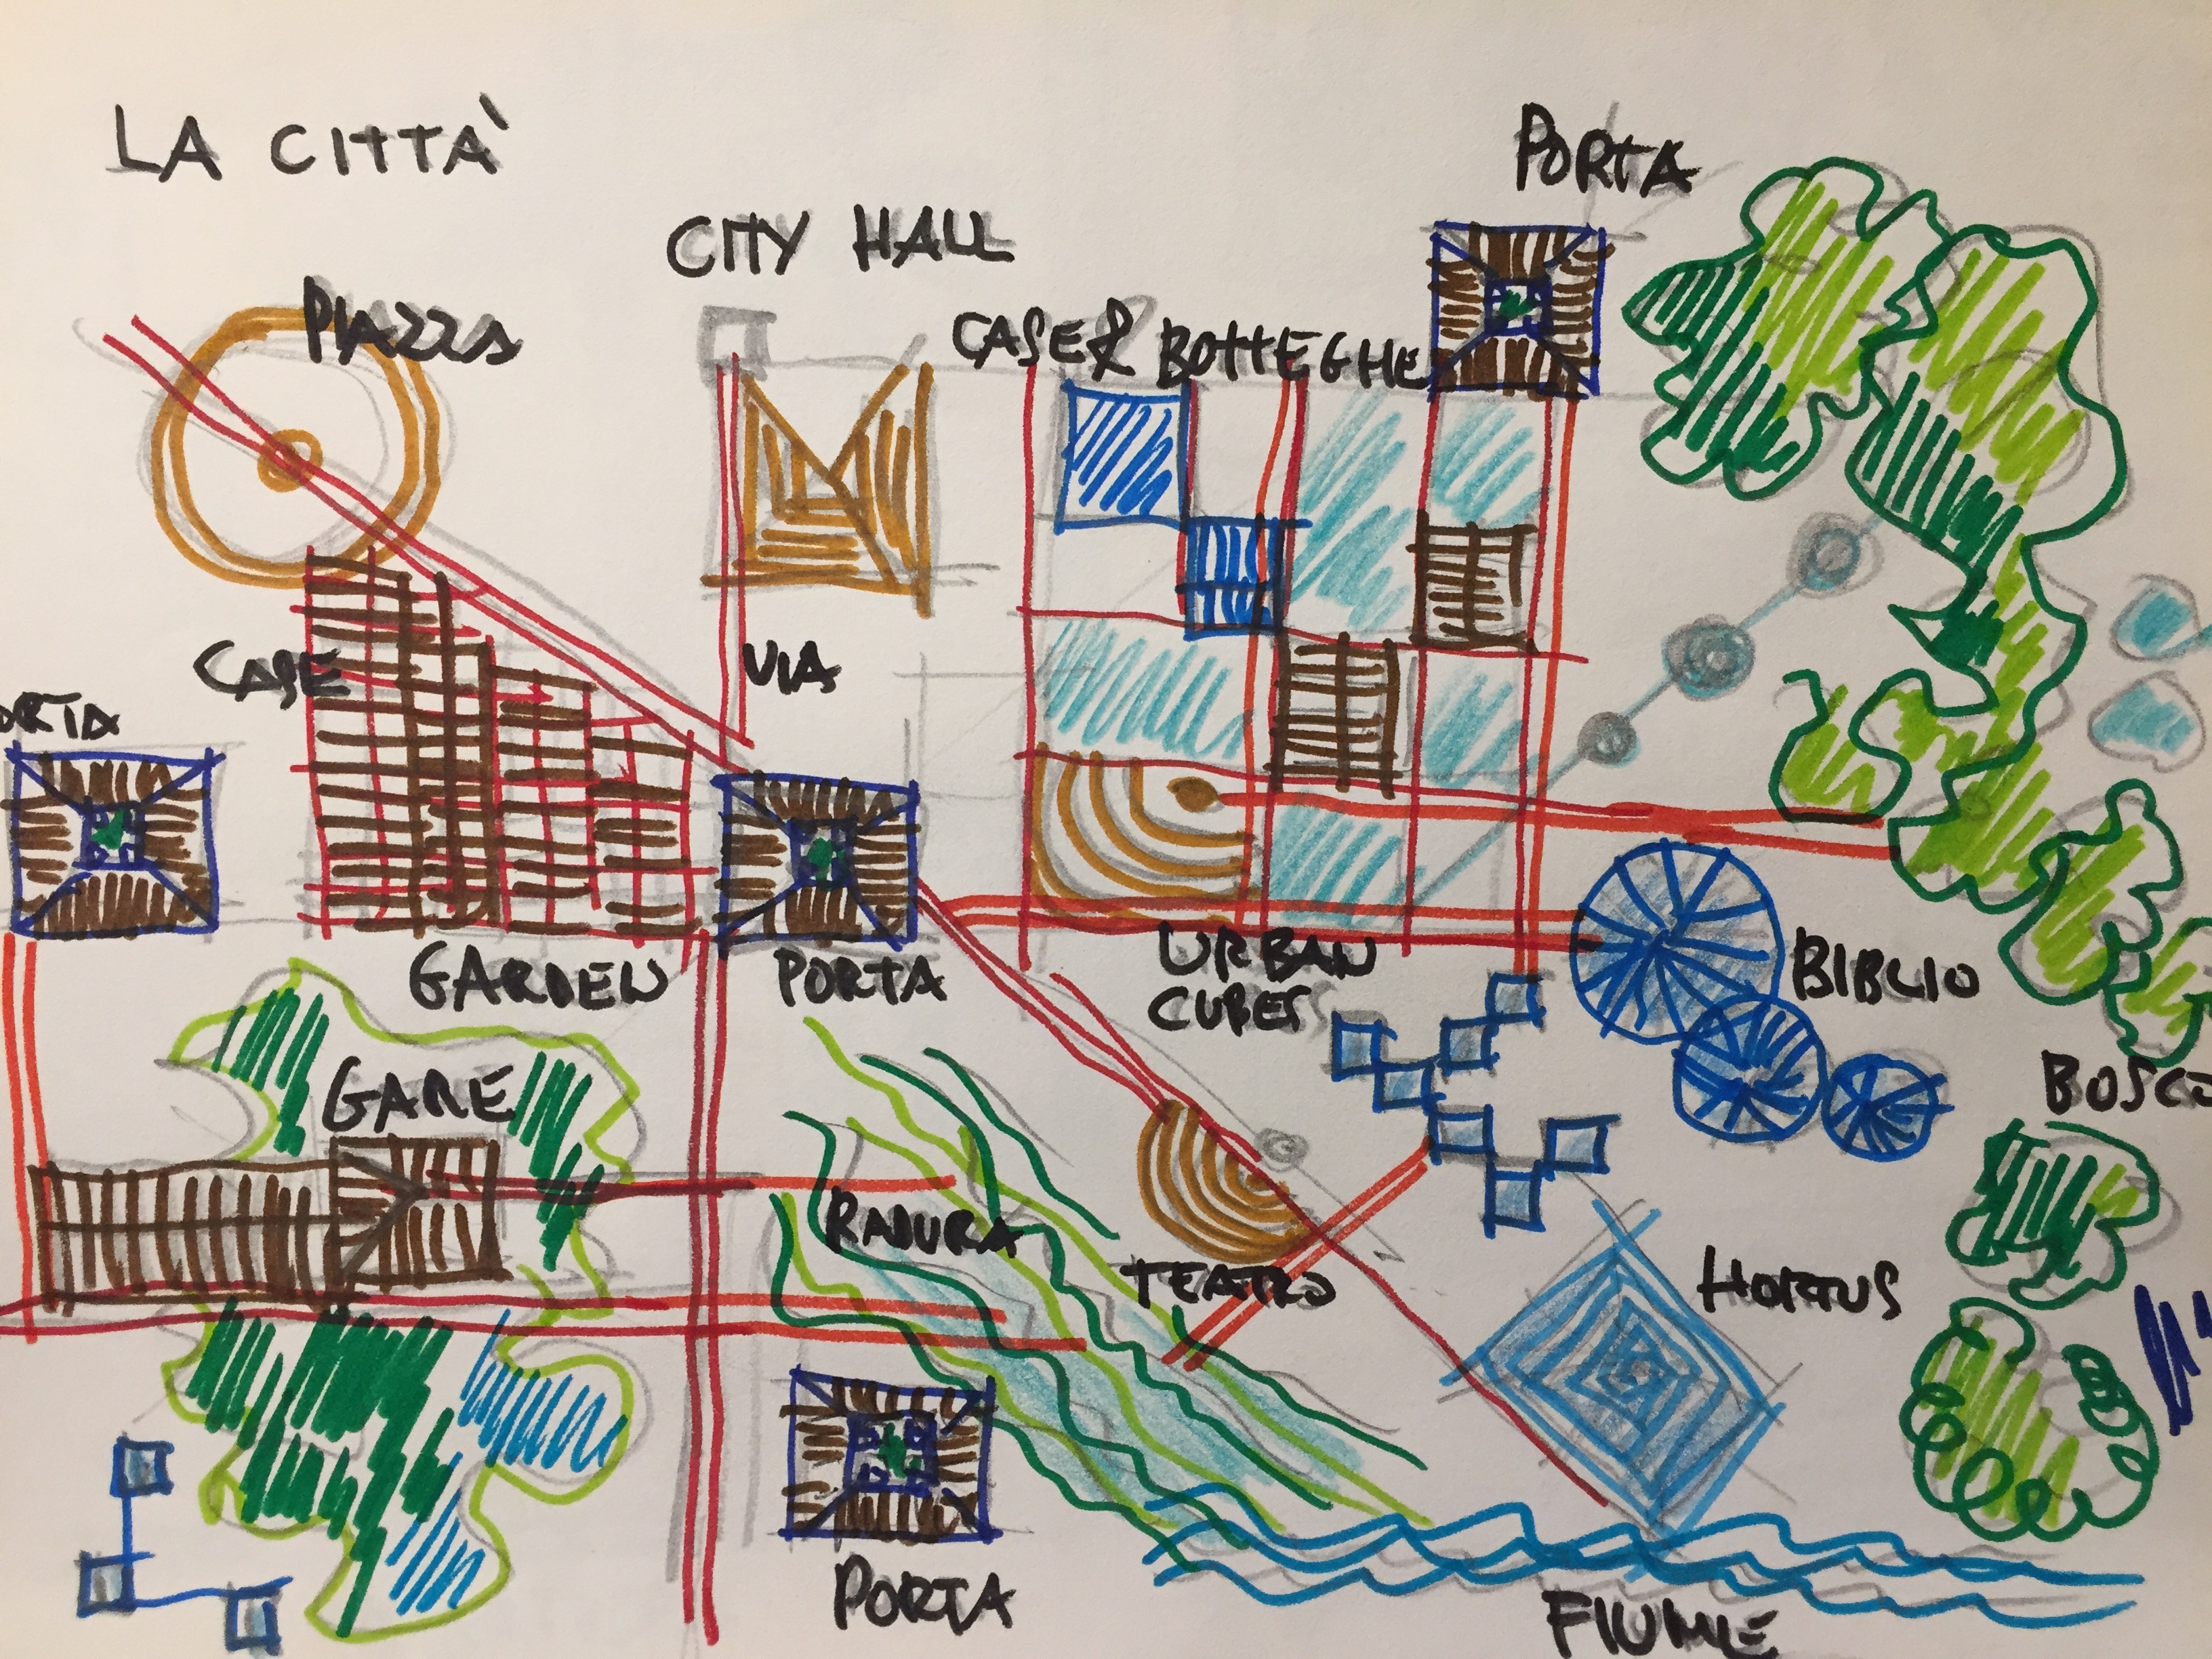 LA CITTÀ
PORTA
CITY HALL
PIAZZA
CASE & BOTTEGHE
CASE
VIA
ORTA
GARDEN
PORTA
URBAN
CUBES
BIBLIO
GARE
BOSCO
RADURA
TEATRO
HORTUS
PORTA
FIUME